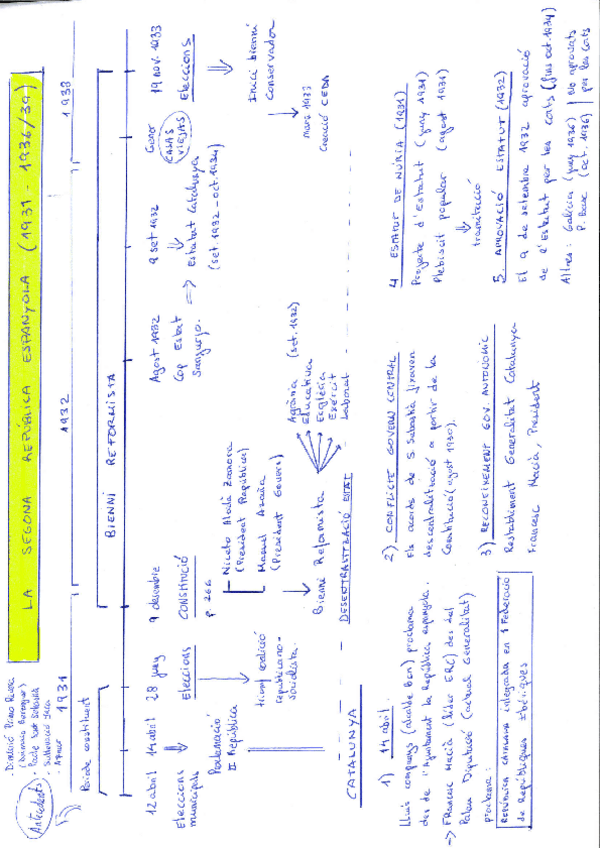 LA SEGONA REPÚBLICA ESPANYOLA (1931 - 1936/39)
Antecedents
· Dictadura Primo Rivera
(Dictadura Berenguer)
· Pacte Sant Sebastià
· Sublevació Jaca
1931
1932
1933
Període constituent
BIENNI REFORMISTA
12 abril
Eleccions
municipals
14 abril
Proclamació
II República
28 juny
Eleccions
coalició
republicano-
socialista.
9 desembre
CONSTITUCIÓ
p. 266
Niceto Alcalà Zamora
(President República)
Manuel Azaña
(President Govern)
Bienni Reformista
Agrària (set. 1932)
Educativa
Església
Exèrcit
Laboral
DESCENTRALITZACIÓ ESTAT
Agost 1932
Cop Estat
Sanjurjo.
9 set 1932
Estatut Catalunya
(set. 1932 - oct. 1934)
Gener
CASAS
VIEJAS
19 nov. 1933
Eleccions
Inici bienni
Conservador
març 1933
Creació CEDA
CATALUNYA
1) 14 abril.
Lluís Companys (alcalde Bcn) proclama
des de l'Ajuntament la República espanyola.
-> Francesc Macià (líder ERC) des del
Palau Diputació (actual Generalitat)
proclama:
REPÚBLICA CATALANA integrada en 1 Federació
de Repúbliques Ibèriques
2) CONFLICTE GOVERN CENTRAL
Els acords de S. Sebastià fixaven
descentralització a partir de la
Constitució (agost 1930).
3) RECONEIXEMENT GOV. AUTONÒMIC
Restabliment Generalitat Catalunya
Francesc Macià, President
4 ESTATUT DE NÚRIA (1931)
Projecte d'Estatut (juny 1931)
Plebiscit popular (agost 1931)
tramitació
5. APROVACIÓ ESTATUT (1932)
El 9 de setembre 1932 aprovació
de l'Estatut per les Corts (fins oct. 1934)
Altres: Galícia (juny 1936) | no aprovats
P. Basc (oct. 1936) | per les Corts